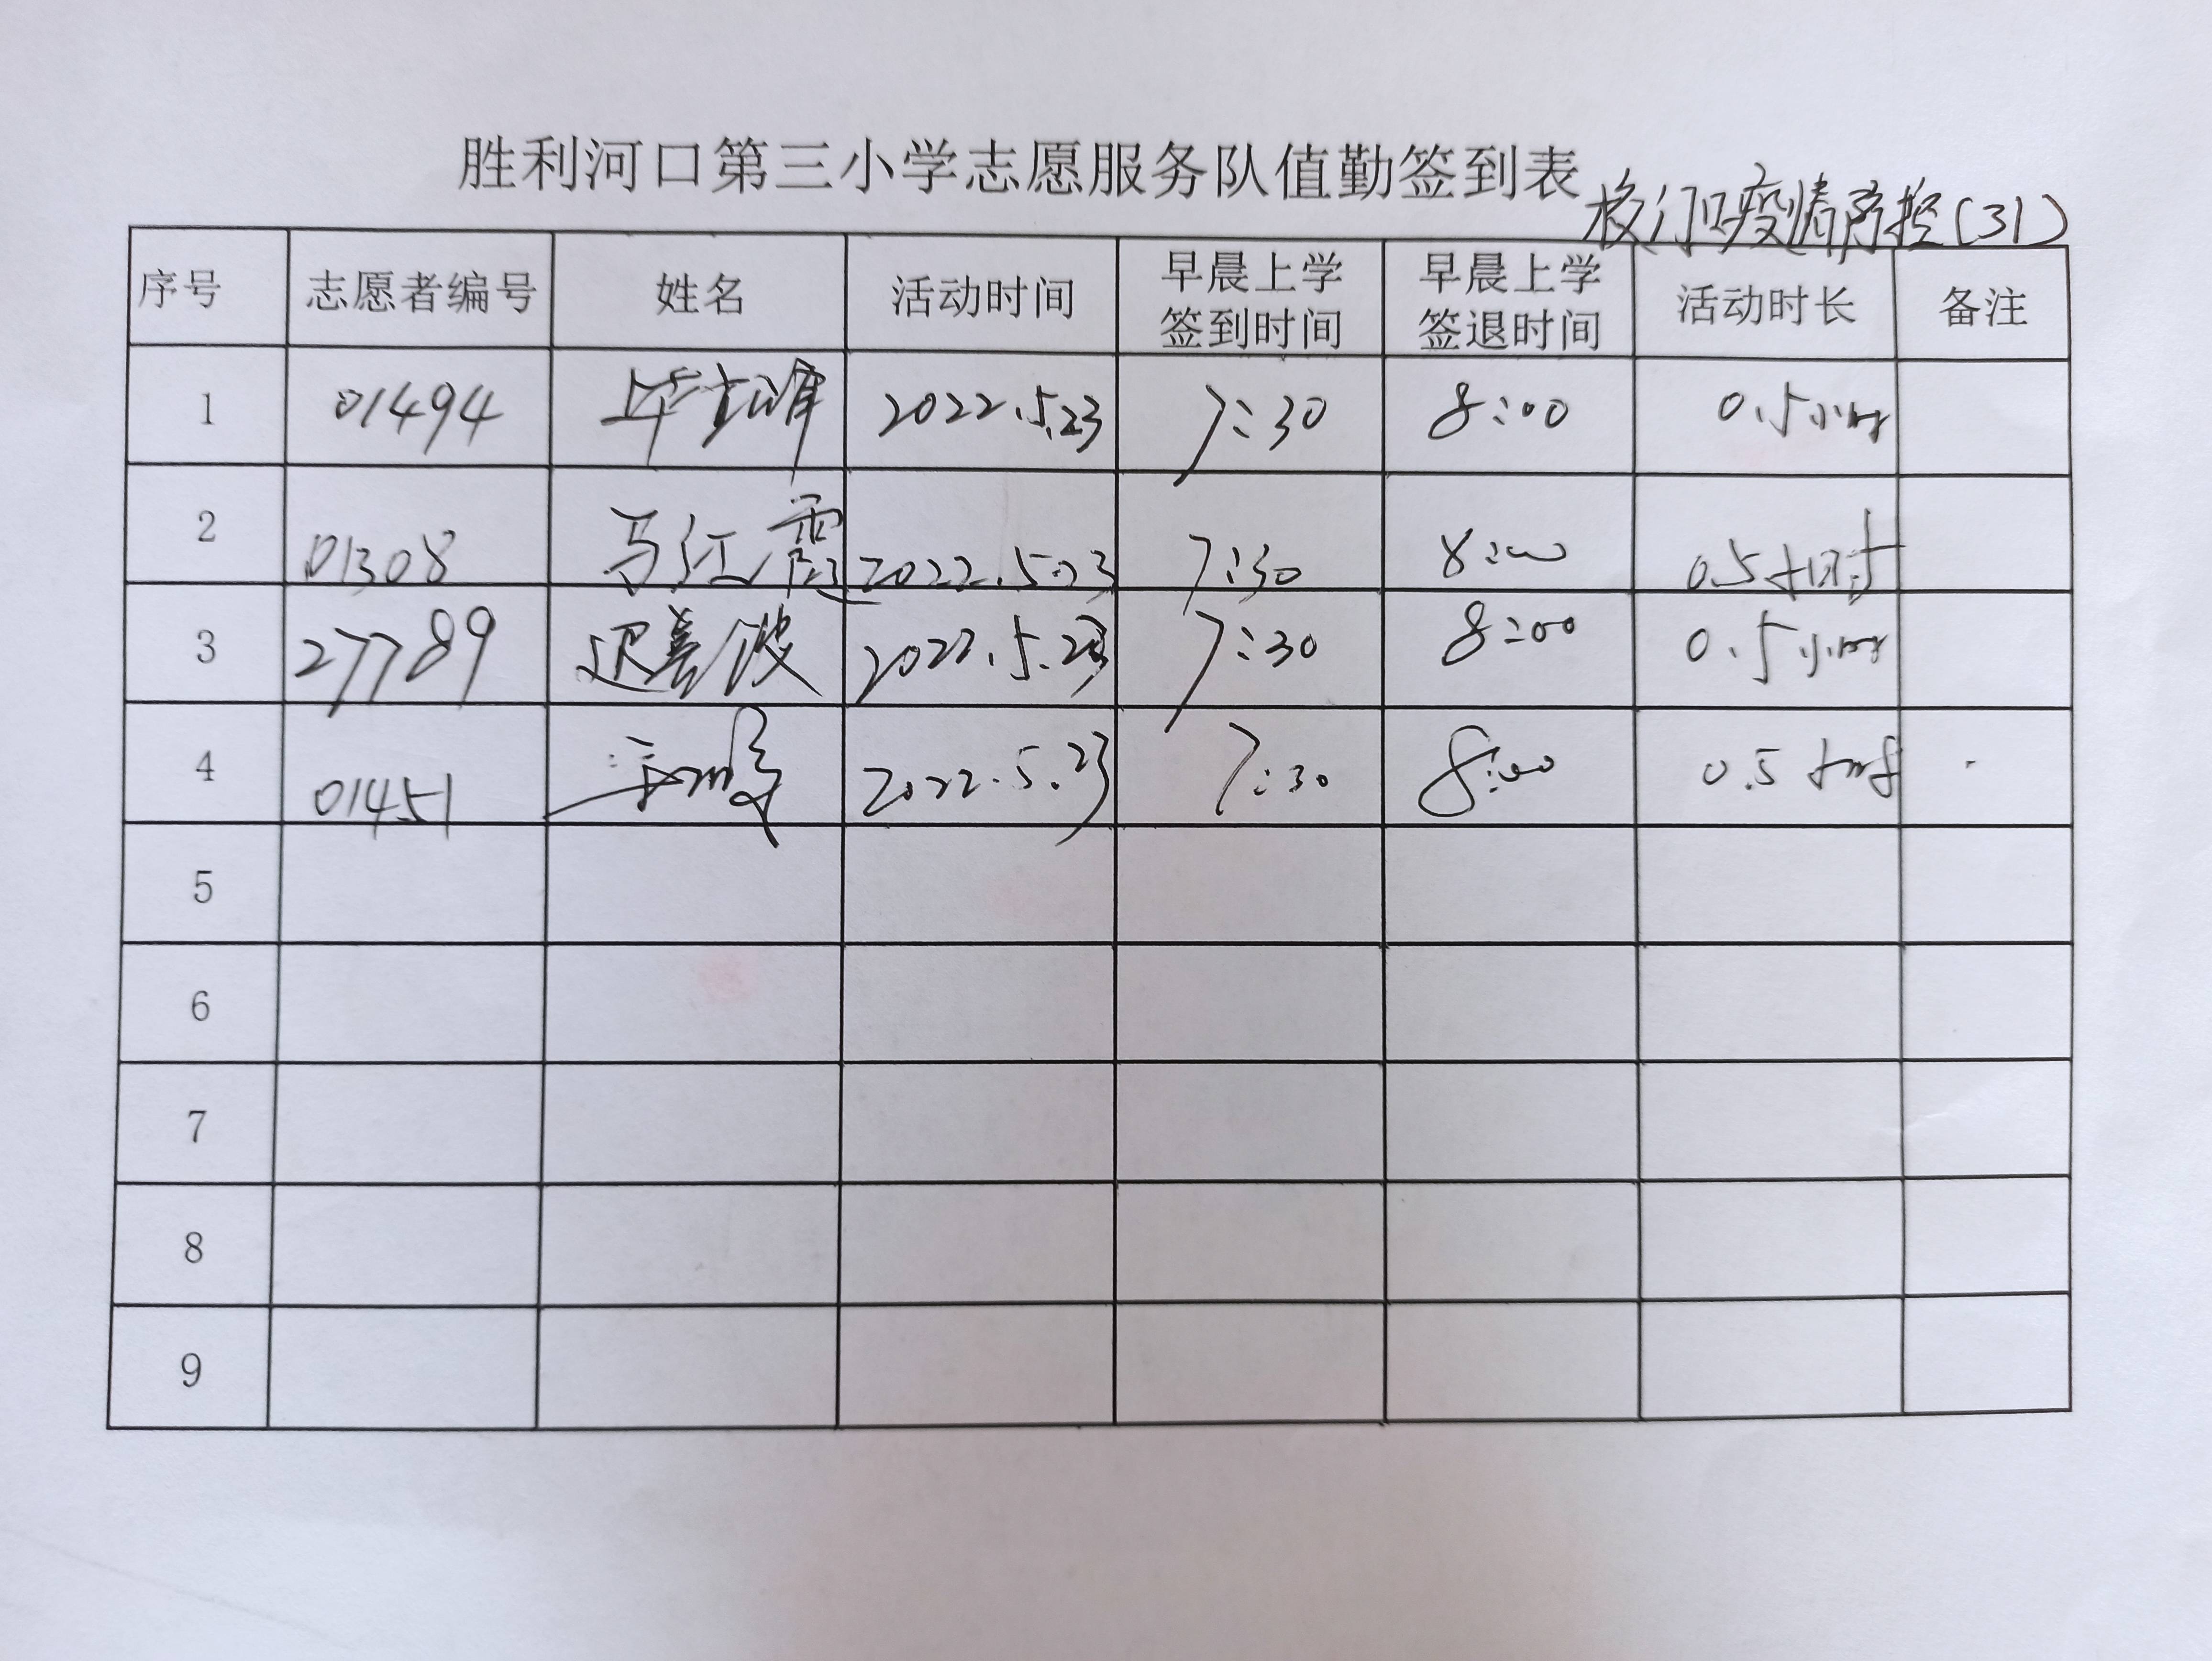 胜利河口第三小学志愿服务队值勤签到表
校门口疫情防控(31)
序号 志愿者编号 姓名 活动时间 早晨上学签到时间 早晨上学签退时间 活动时长 备注
1 01494 毕 2022.5.23 7:30 8:00 0.5小时
2 01308 马红霞 2022.5.23 7:30 8:00 0.5小时
3 27789 迟善波 2022.5.23 7:30 8:00 0.5小时
4 01451 2022.5.23 7:30 8:00 0.5小时
5
6
7
8
9